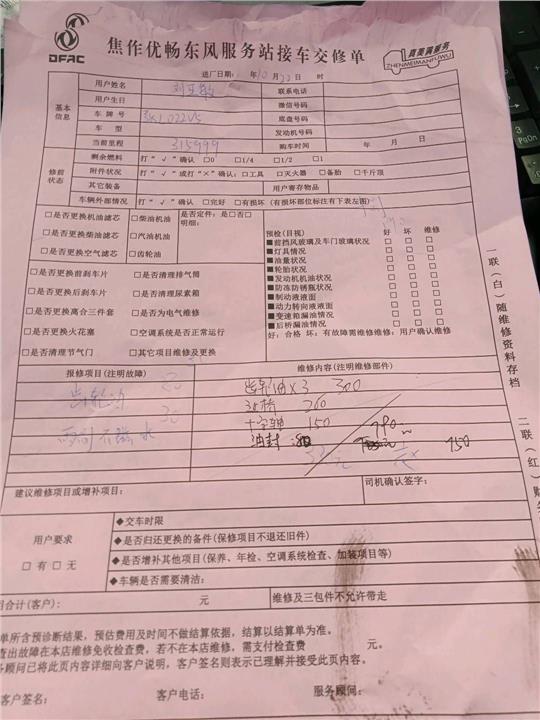 DFAC
焦作优畅东风服务站接车交修单
真美满服务
ZHENMEIMANFUWU
送厂日期: 年 10 月 22 日 时
基本信息
用户姓名 联系电话
用户生日 微信号码
车牌号 底盘号码
车型 发动机号码
当前里程 315999 购车时间 年 月 日
修前状态
剩余燃料 打“√”确认 □0 □1/4 □1/2 □1
附件状况 打“√”或打“×”确认:□工具 □灭火器 □备胎 □千斤顶
其它装备 用户寄存物品
车辆外部情况 打“√”确认 □完好 □有损坏(有损坏部位标注有下表左图)
□是否更换机油滤芯 □柴油机油 是否定件: 是□否□
□是否更换柴油滤芯 □汽油机油 明细:
□是否更换空气滤芯 □齿轮油
□是否更换前刹车片 □是否清理排气筒
□是否更换后刹车片 □是否清理尿素箱
□是否更换离合三件套 □是否为电气维修
□是否更换火花塞 □空调系统是否正常运行
□是否清理节气门 □其它项目维修及更换
预检(目视) 好 坏 维修
■前挡风玻璃及车门玻璃状况 □ □ □
■灯具情况 □ □ □
■油量状况 □ □ □
■轮胎状况 □ □ □
■发动机机油状况 □ □ □
■防冻防锈瓶状况 □ □ □
■制动液液面 □ □ □
■动力转向液液面 □ □ □
■变速箱漏油情况 □ □ □
■后桥漏油情况 □ □ □
好: 合格 坏: 有故障需维修维修: 用户确认维修
报修项目(注明故障) 维修内容(注明维修部件)
齿轮油 齿轮油×3 300
260
十字轴 150
油封
750
建议维修项目或增补项目: 司机确认签字:
用户要求
□有 □无
◆交车时限
◆是否归还更换的备件(保修项目不退还旧件)
◆是否增补其他项目(保养、年检、空调系统检查、加装项目等)
◆车辆是否需要清洁:
用合计(客户): 元 维修及三包件不允许带走
单所含预诊断结果,预估费用及时间不做结算依据,结算以结算单为准。
查出故障在本店维修免收检查费,若不在本店维修,需支付检查费 元。
务顾问已将此页内容详细向客户说明,客户签名则表示已理解并接受此页内容。
客户签名: 客户电话: 服务顾问:
一联(白)随维修资料存档
二联(红)